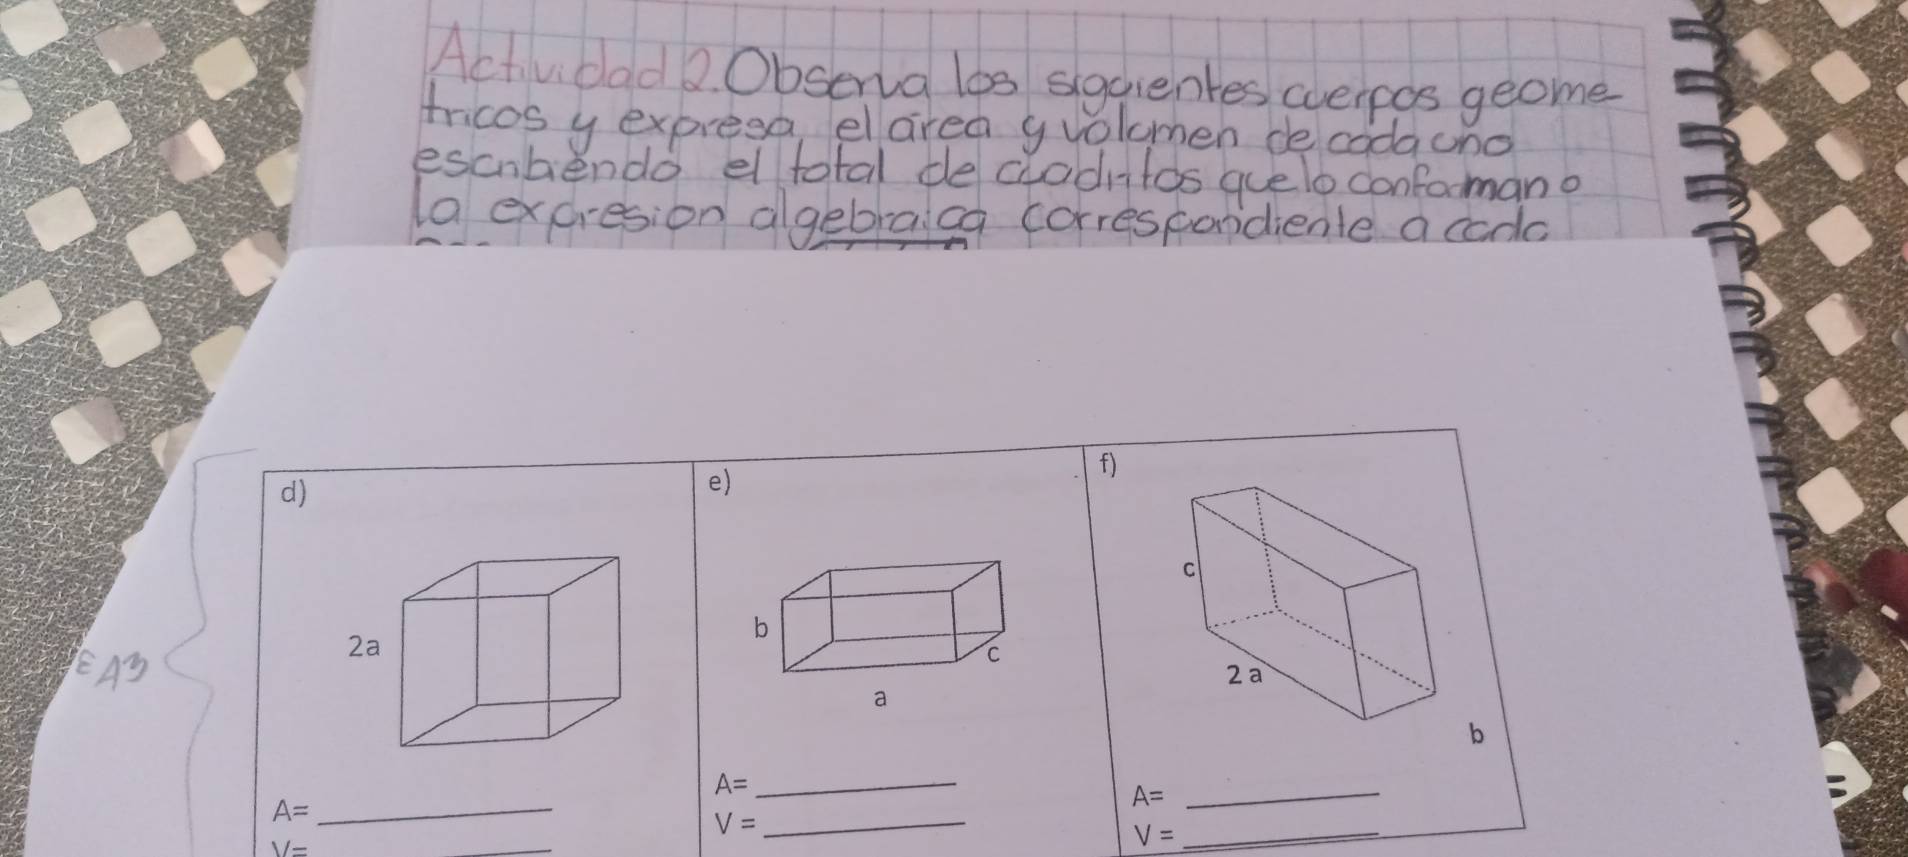 Actividad 2. Observa los siguientes cuerpos geome
tricos y expresa el área y volumen de cada uno
escribiendo el total de cuadritos que lo conforman o
la expresion algebraica correspondiente a cada
d)
e)
f)
2a
b
c
a
c
2 a
b
EA3
A=
V=
A=
V =
A=
V =